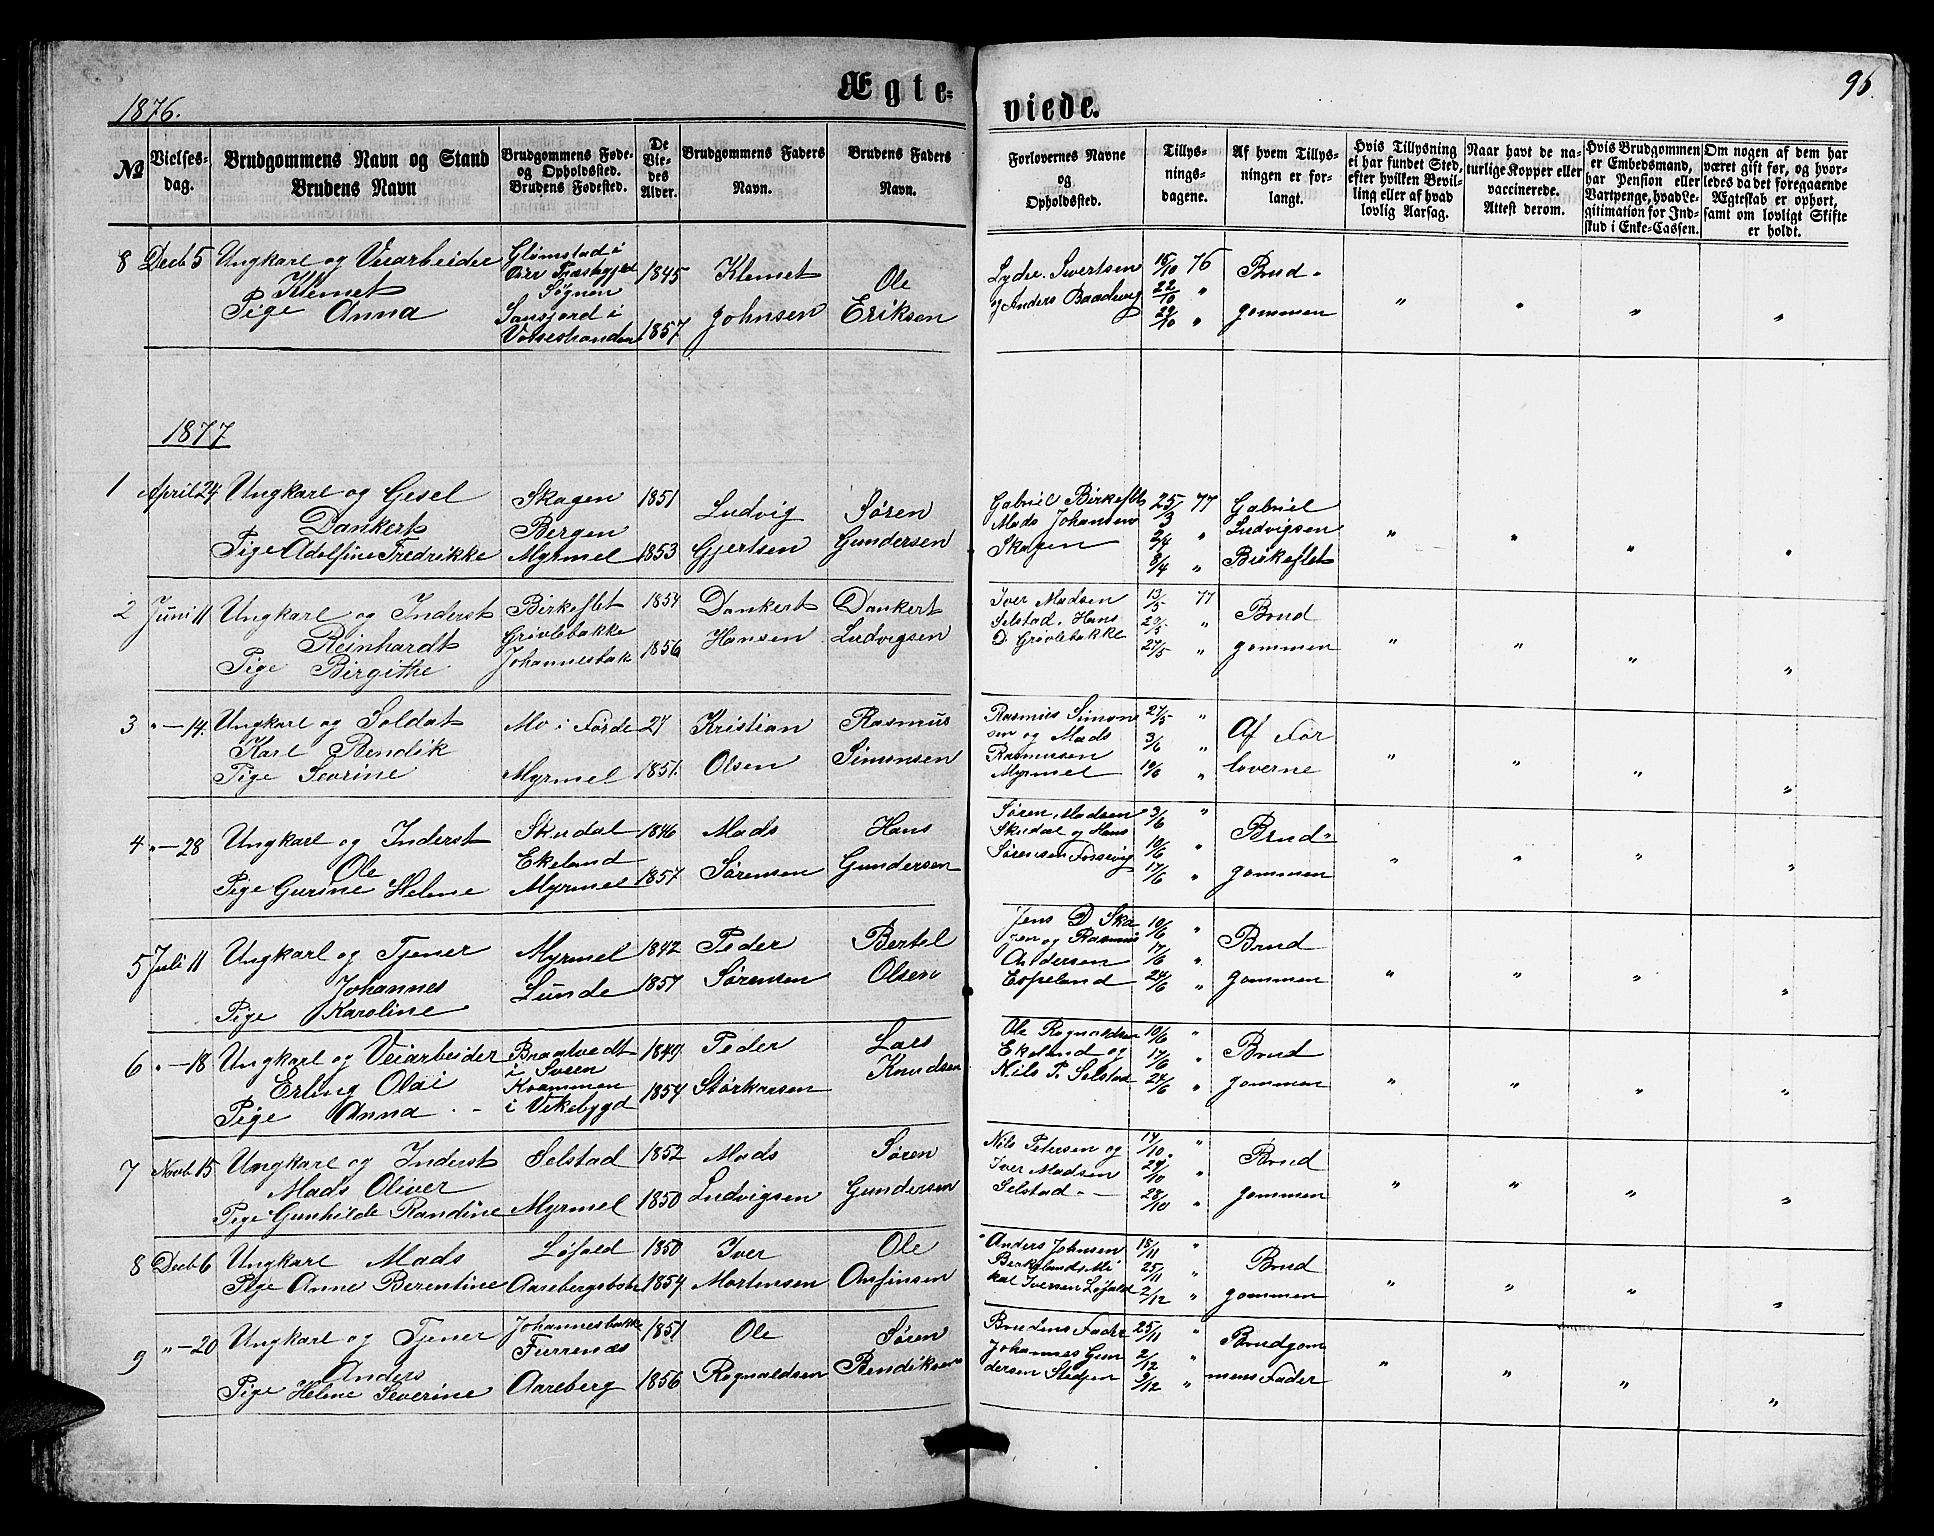 1876.
Ægte-
viede.
96.
№
Vielses-
dag.
Brudgommens Navn og Stand
Brudens Navn
Brudgommens Føde-
og Opholdssted.
Brudens Fødested.
De
Vie-
des
Alder.
Brudgommens Faders
Navn.
Brudens Faders
Navn.
Forlovernes Navne
og
Opholdssted.
Tillys-
nings-
dagene.
Af hvem Tillys-
ningen er for-
langt.
Hvis Tillysning
ei har fundet Sted,
efter hvilken Bevil-
ling eller af hvad
lovlig Aarsag.
Naar havt de na-
turlige Kopper eller
vaccinerede.
Attest derom.
Hvis Brudgommen
er Embedsmand,
har Pension eller
Vartpenge, hvad Le-
gitimation for Ind-
skud i Enke-Cassen.
Om nogen af dem har
været gift før, og hvor-
ledes da det foregaaende
Ægteskab er ophørt,
samt om lovligt Skifte
er holdt.
8 Decb 5 Ungkarl og Veiarbeider
Klemet
Pige Anna
Glømstad i
Søgnen
i
1845
1857
Klemet
Johnsen
Ole
Eriksen
Sivertsen
og Anders
15/10 76
22/10 "
29/10 "
Brud-
gommen
" " " "
1877
1 April 24 Ungkarl og Gesel
Dankert
Pige Adolfine Fredrikke
Skagen
Bergen
Myrmel
1851
1853
Ludvig
Gjertsen
Søren
Gundersen
Gabriel Birkeflet
Mads Johansen
Skagen
25/3 77
2/4 "
8/4 "
Gabriel
Ludvigsen
Birkeflet
" " " "
2 Juni 11 Ungkarl og Inderst
Reinhardt
Pige Birgithe
Birkeflet
Grøvlebakke
Johannesbak
1854
1856
Dankert
Hansen
Dankert
Ludvigsen
Iver Madsen
Selstad, Hans
D. Grøvlebakke
13/5 77
27/5 "
Brud
gommen
" " " "
3 "-14. Ungkarl og Soldat
Karl Bendik
Pige Severine
Mo i Førde
Myrmel
27
1851.
Kristian
Olsen
Rasmus
Simonsen
Rasmus Simon
sen og Mads
Rasmussen
Myrmel
27/5 "
3/6 "
10/6 "
Af For
loverne
" " " "
4 "-28 Ungkarl og Inderst
Ole
Pige Gurine Helene
Skudal
Ekeland
Myrmel
1846
1857
Mads
Sørensen
Hans
Gundersen
Søren Madsen
Skudal og Hans
Sørensen Fossevig
3/6 "
10/6 "
17/6 "
Brud-
gommen
" " " "
5 Juli 11 Ungkarl og Tjener
Johannes
Pige Karoline
Myrmel
Lunde
1842
1857
Peder
Sørensen
Bertel
Olsen
Jens D Ska
gen og Rasmus
Andersen
Espeland
10/6 "
17/6 "
24/6 "
Brud
gommen
" " " "
6 "-18 Ungkarl og Veiarbeider
Erling Olai
Pige Anna
Braatvedt
i Svæn
Kvammen
i Vikebygd
1849
1854
Peder
Størkersen
Lars
Knudsen
Ole Rognaldsen
Ekeland og
Nils P. Selstad
10/6 "
17/6 "
24/6 "
Brud
gommen
" " " "
7 Novb 15 Ungkarl og Inderst
Mads Oliver
Pige Gunhilde Randine
Selstad
Myrmel
1852
1850
Mads
Ludvigsen
Søren
Gundersen
Nils Petersen og
Iver Madsen
Selstad
14/10 "
21/10 "
28/10 "
Brud
gommen
" " " "
8 Decb 6 Ungkarl Mads
Pige Anne Berentine
Løfald
Aarebergsbotn
1850
1854
Iver
Mortensen
Ole
Anfinsen
Anders Johnsen
Birkeland, Mi
kal Iversen Løfald
18/11 "
25/11 "
2/12 "
Brud
gommen
" " " "
9 "-20 Ungkarl og Tjener
Anders
Pige Helene Severine
Johannesbakke
Furrenæs
Aareberg
1851
1856
Ole
Rognaldsen
Søren
Bendiksen
Brudens Fader
Johannes Gun
dersen Stedjen
25/11 "
2/12 "
9/12 "
Brudgom
mens Fader
" " " "